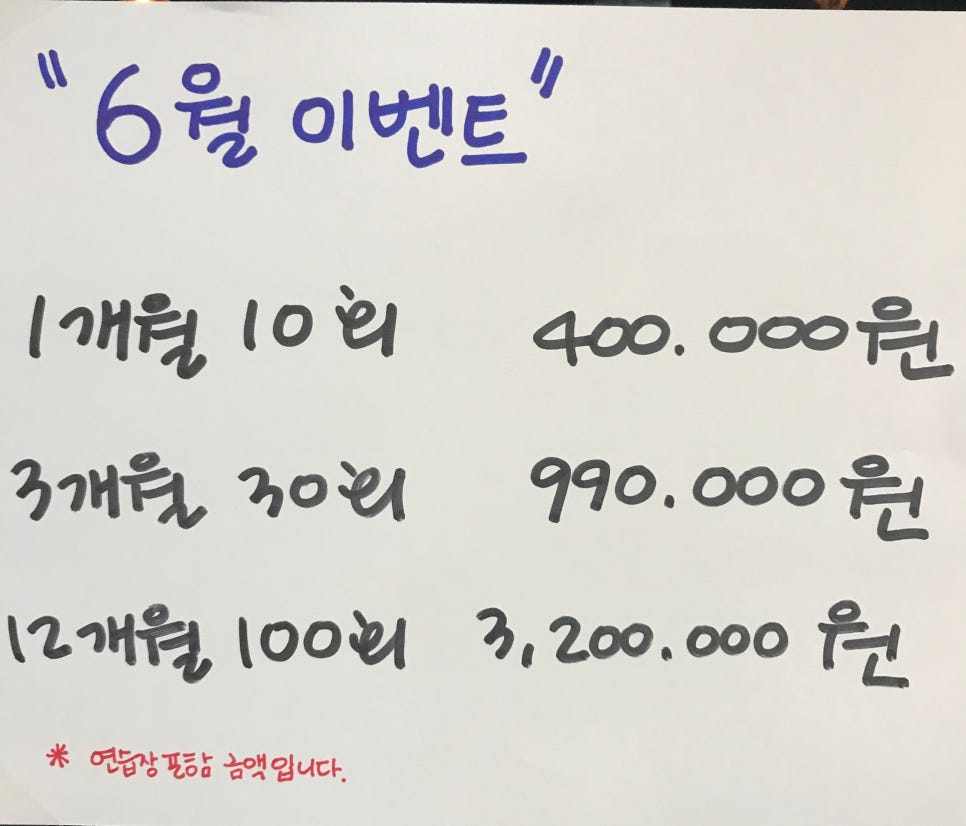 "6월 이벤트"
1개월 10회 400.000원
3개월 30회 990.000원
12개월 100회 3,200.000원
* 연습장 포함 금액입니다.